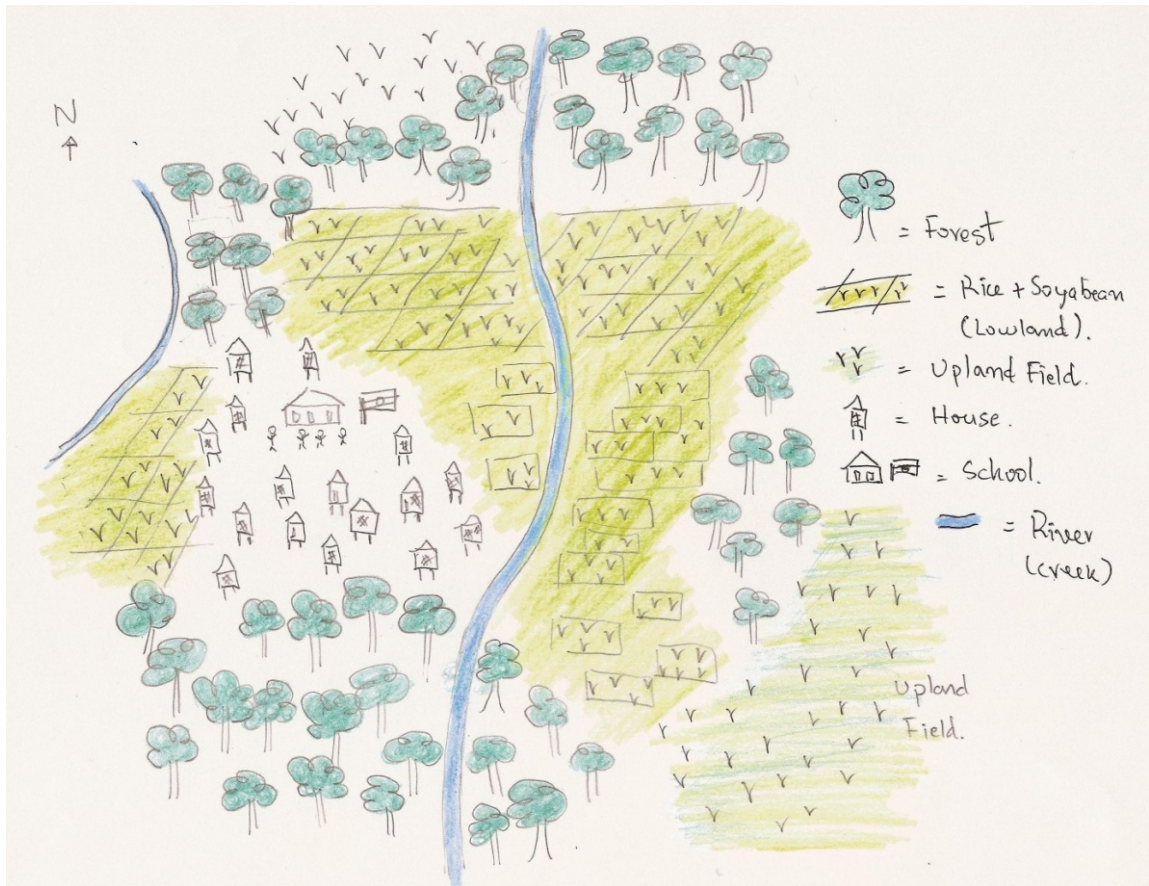 N
= Forest
= Rice + Soyabean
(Lowland).
= Upland Field.
= House.
= School.
= River
(creek)
Upland
Field.